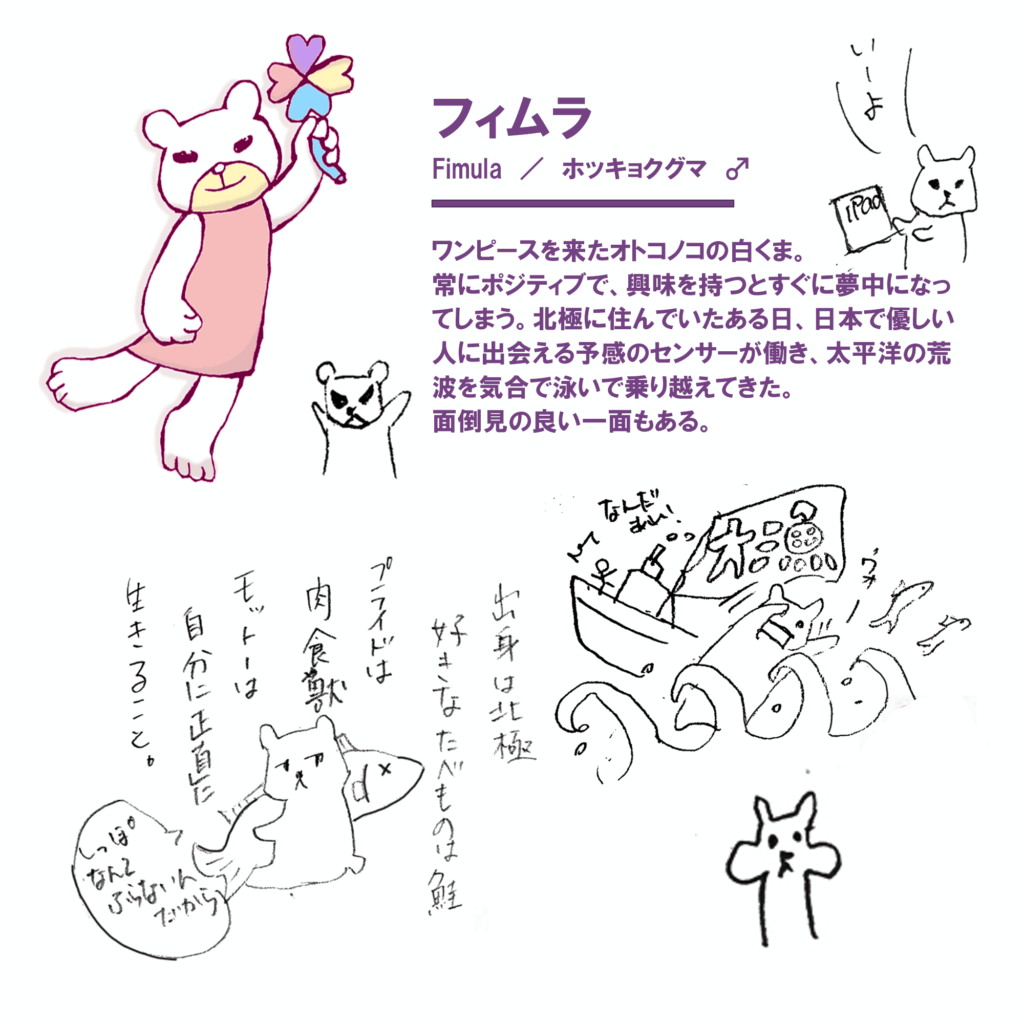 フィムラ
Fimula ／ ホッキョクグマ ♂
いーよ
iPad
ワンピースを来たオトコノコの白くま。
常にポジティブで、興味を持つとすぐに夢中になっ
てしまう。北極に住んでいたある日、日本で優しい
人に出会える予感のセンサーが働き、太平洋の荒
波を気合で泳いで乗り越えてきた。
面倒見の良い一面もある。
なんだ
あれ!
大漁
出身は北極
好きなたべものは鮭
プライドは
肉食獣
モットーは
自分に正直に
生きること。
しっぽ
なんて
ふらないん
だから